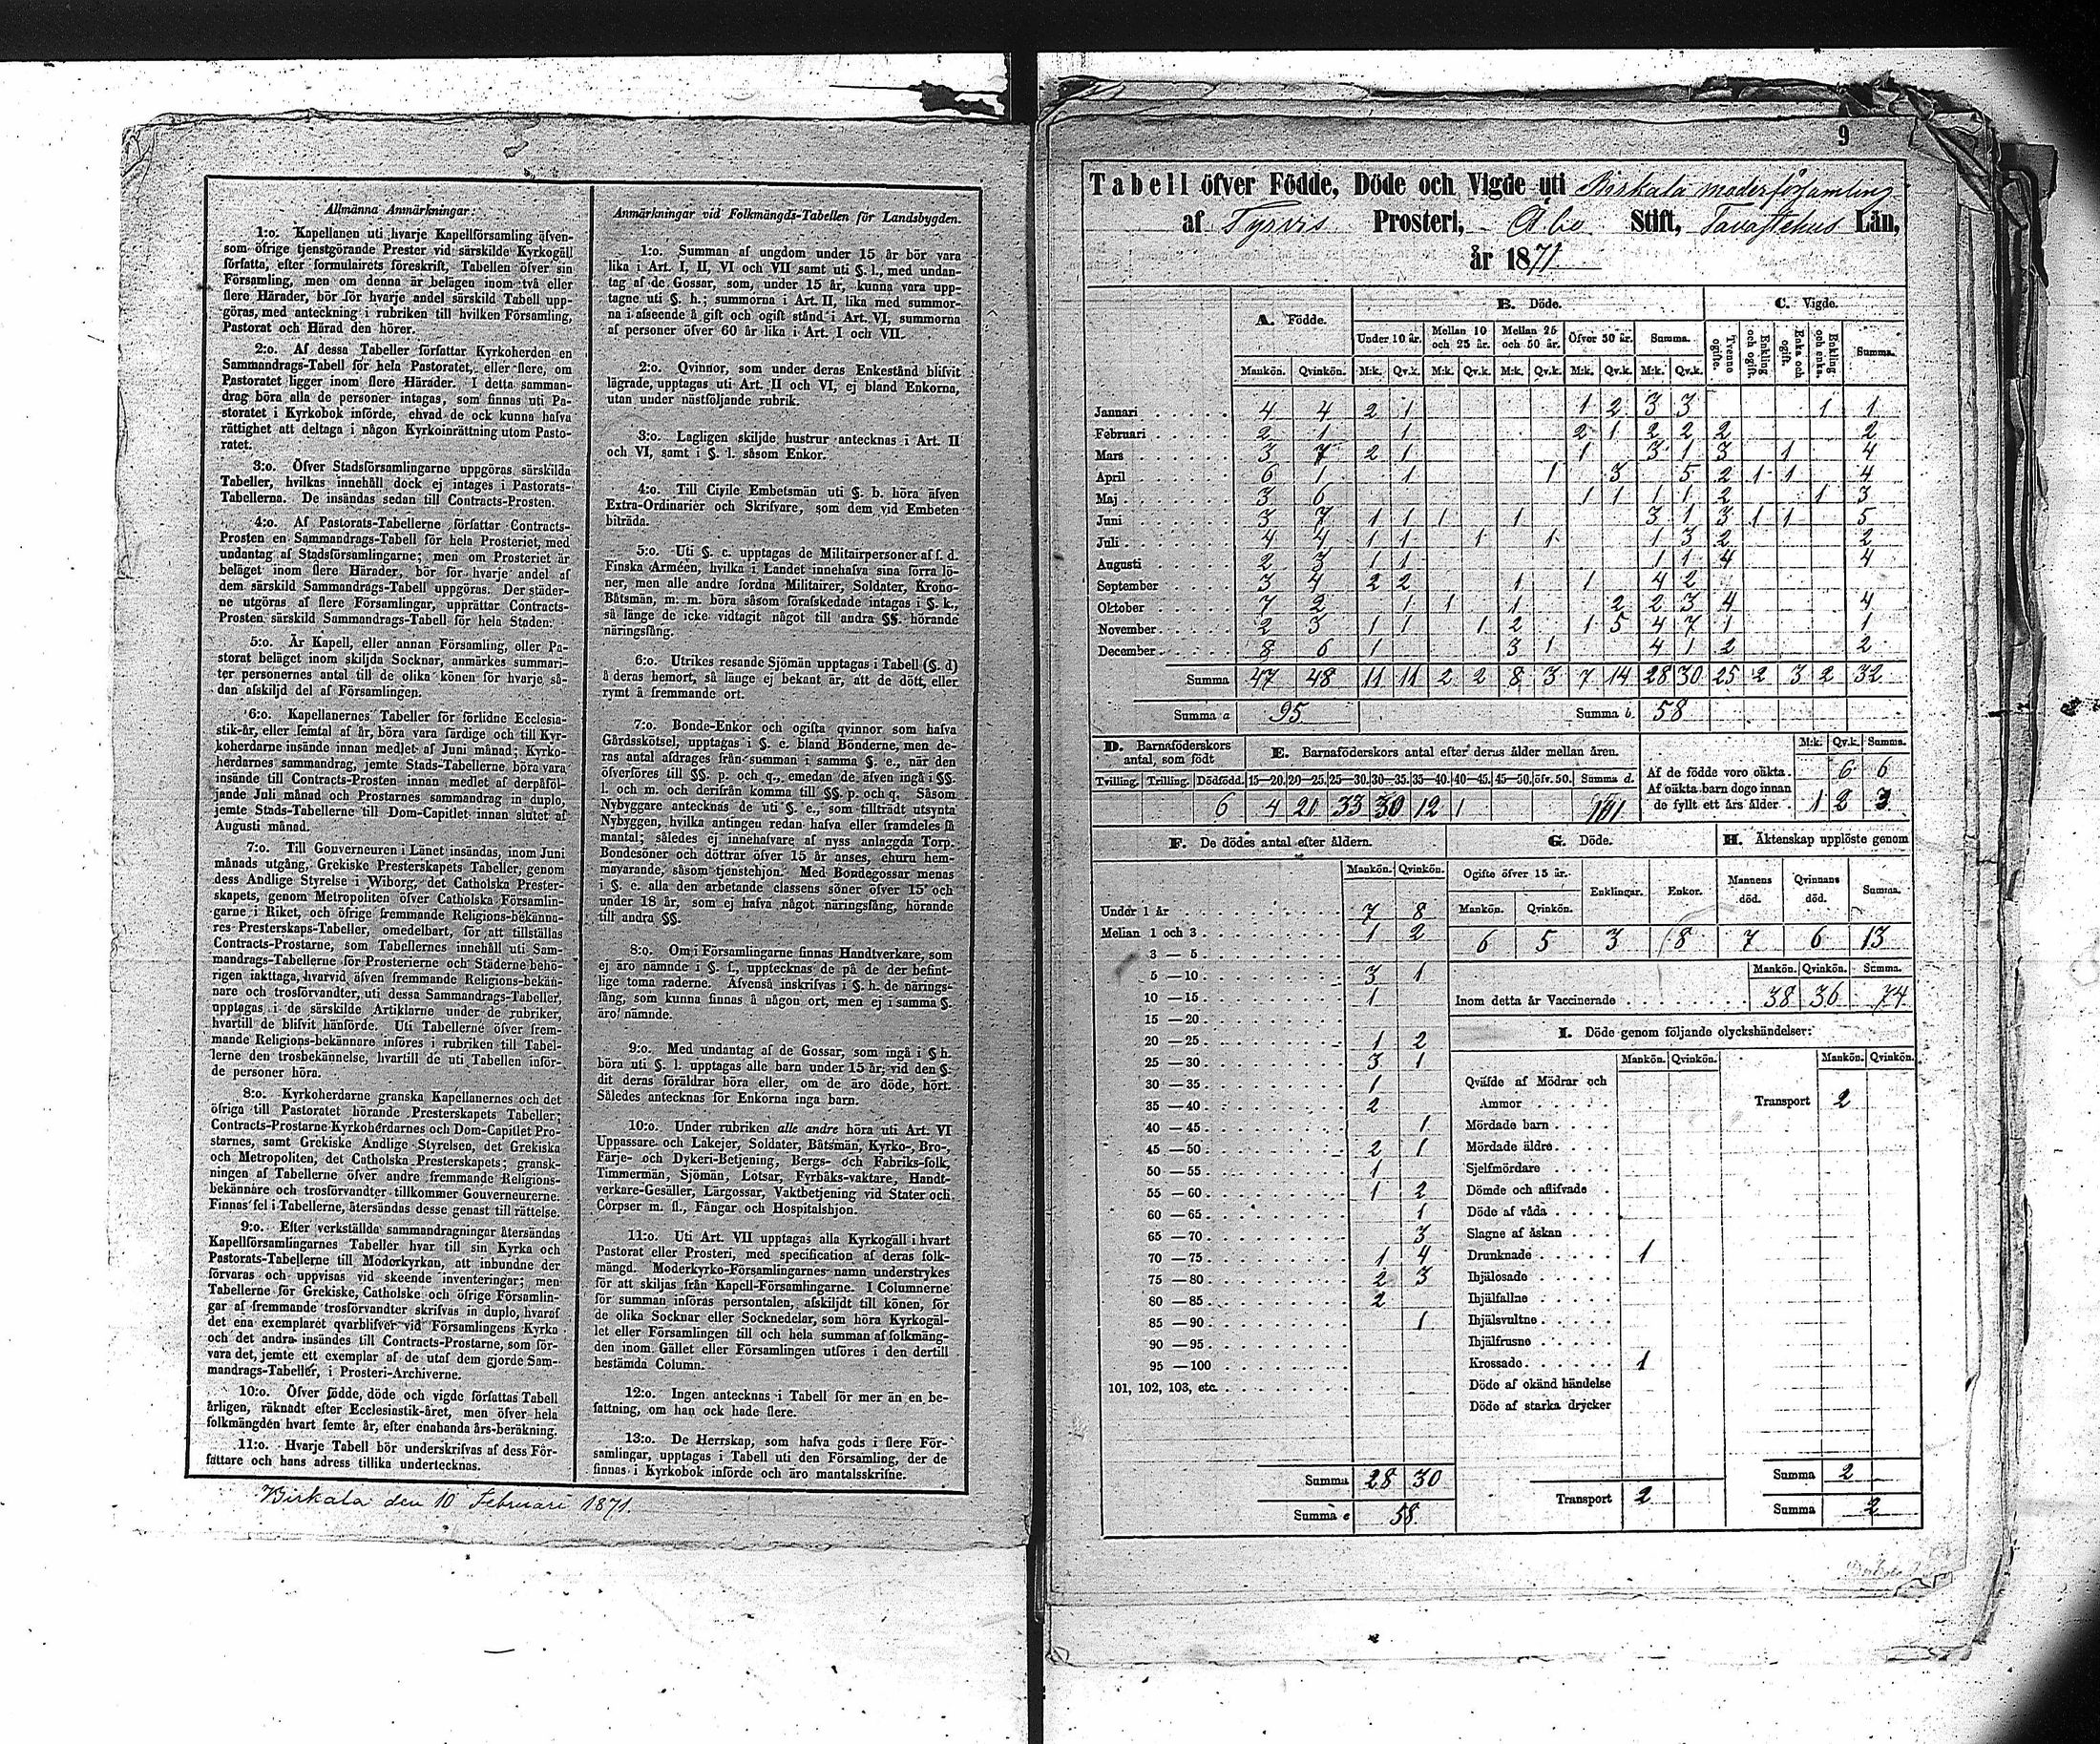 Allmänna Anmärkningar:
1:o. Kapellanen uti hvarje Kapellförsamling äfven-
som öfrige tjenstgörande Prester vid särskilde Kyrkogäll
författa, efter formulairets föreskrift, Tabellen öfver sin
Församling, men om denna är belägen inom två eller
flere Härader, bör för hvarje andel särskild Tabell upp-
göras, med anteckning i rubriken till hvilken Församling,
Pastorat och Härad den hörer.
2:o. Af dessa Tabeller författar Kyrkoherden en
Sammandrags-Tabell för hela Pastoratet, eller flere, om
Pastoratet ligger inom flere Härader. I detta samman-
drag böra alla de personer intagas, som finnas uti Pa-
storatet i Kyrkobok införde, ehvad de ock kunna hafva
rättighet att deltaga i någon Kyrkoinrättning utom Pasto-
ratet.
3:o. Öfver Stadsförsamlingarne uppgöras särskilda
Tabeller, hvilkas innehåll dock ej intages i Pastorats-
Tabellerna. De insändas sedan till Contracts-Prosten.
4:o. Af Pastorats-Tabellerne författar Contracts-
Prosten en Sammandrags-Tabell för hela Prosteriet, med
undantag af Stadsförsamlingarne; men om Prosteriet är
beläget inom flere Härader, bör för hvarje andel af
dem särskild Sammandrags-Tabell uppgöras. Der städer-
ne utgöras af flere Församlingar, upprättar Contracts-
Prosten särskild Sammandrags-Tabell för hela Staden.
5:o. Är Kapell, eller annan Församling, eller Pa-
storat beläget inom skiljda Socknar, anmärkes summari-
ter personernes antal till de olika könen för hvarje så-
dan afskiljd del af Församlingen.
6:o. Kapellanernes Tabeller för förlidne Ecclesia-
stik-år, eller femtal af år, böra vara färdige och till Kyr-
koherdarne insände innan medlet af Juni månad; Kyrko-
herdarnes sammandrag, jemte Stads-Tabellerne, böra vara
insände till Contracts-Prosten innan medlet af derpåföl-
jande Juli månad och Prostarnes sammandrag in duplo,
jemte Stads-Tabellerne till Dom-Capitlet innan slutet af
Augusti månad.
7:o. Till Gouverneuren i Länet insändas, inom Juni
månads utgång, Grekiske Presterskapets Tabeller, genom
dess Andlige Styrelse i Wiborg, det Catholska Prester-
skapets, genom Metropoliten öfver Catholska Församlin-
garne i Riket, och öfrige fremmande Religions-bekänna-
res Presterskaps-Tabeller, omedelbart, för att tillställas
Contracts-Prostarne, som Tabellernes innehåll uti Sam-
mandrags-Tabellerne för Prosterierne och Städerne behö-
rigen iakttaga, hvarvid äfven fremmande Religions-bekän-
nare och trosförvandter, uti dessa Sammandrags-Tabeller,
upptagas i de särskilde Artiklarne under de rubriker,
hvartill de blifvit hänförde. Uti Tabellerne öfver frem-
mande Religions-bekännare införes i rubriken till Tabel-
lerne den trosbekännelse, hvartill de uti Tabellen inför-
de personer höra.
8:o. Kyrkoherdarne granska Kapellanernes och det
öfriga till Pastoratet hörande Presterskapets Tabeller;
Contracts-Prostarne Kyrkoherdarnes och Dom-Capitlet Pro-
starnes, samt Grekiske Andlige Styrelsen, det Grekiska
och Metropoliten, det Catholska Presterskapets; gransk-
ningen af Tabellerne öfver andre fremmande Religions-
bekännare och trosförvandter tillkommer Gouverneurerne.
Finnas fel i Tabellerne, återsändas desse genast till rättelse.
9:o. Efter verkställde sammandragningar återsändas
Kapellförsamlingarnes Tabeller hvar till sin Kyrka och
Pastorats-Tabellerne till Moderkyrkan, att inbundne der
förvaras och uppvisas vid skeende inventeringar; men
Tabellerne för Grekiske, Catholske och öfrige Församlin-
gar af fremmande trosförvandter skrifvas in duplo, hvaraf
det ena exemplaret qvarblifver vid Församlingens Kyrka
och det andra insändes till Contracts-Prostarne, som för-
vara det, jemte ett exemplar af de utaf dem gjorde Sam-
mandrags-Tabeller, i Prosteri-Archiverne.
10:o. Öfver födde, döde och vigde författas Tabell
årligen, räknadt efter Ecclesiastik-året, men öfver hela
folkmängden hvart femte år, efter enahanda års-beräkning.
11:o. Hvarje Tabell bör underskrifvas af dess För-
fattare och hans adress tillika undertecknas.
Anmärkningar vid Folkmängds-Tabellen för Landsbygden.
1:o. Summan af ungdom under 15 år bör vara
lika i Art. I, II, VI och VII samt uti §. l., med undan-
tag af de Gossar, som, under 15 år, kunna vara upp-
tagne uti §. h.; summorna i Art. II, lika med summor-
na i afseende å gift och ogift stånd i Art. VI, summorna
af personer öfver 60 år lika i Art. I och VII.
2:o. Qvinnor, som under deras Enkestånd blifvit
lägrade, upptagas uti Art. II och VI, ej bland Enkorna,
utan under nästföljande rubrik.
3:o. Lagligen skiljde hustrur antecknas i Art. II
och VI, samt i §. l. såsom Enkor.
4:o. Till Civile Embetsmän uti §. b. höra äfven
Extra-Ordinarier och Skrifvare, som dem vid Embeten
biträda.
5:o. Uti §. c. upptagas de Militairpersoner af f. d.
Finska Arméen, hvilka i Landet innehafva sina förra lö-
ner, men alle andre fordna Militairer, Soldater, Krono-
Båtsmän, m. m. böra såsom förafskedade intagas i §. k.,
så länge de icke vidtagit något till andra §§. hörande
näringsfång.
6:o. Utrikes resande Sjömän upptagas i Tabell (§. d)
å deras hemort, så länge ej bekant är, att de dött, eller
rymt å fremmande ort.
7:o. Bonde-Enkor och ogifta qvinnor som hafva
Gårdsskötsel, upptagas i §. e. bland Bönderne, men de-
ras antal afdrages från summan i samma §. e., när den
öfverföres till §§. p. och q., emedan de äfven ingå i §§.
l. och m. och derifrån komma till §§. p. och q. Såsom
Nybyggare antecknas de uti §. e., som tillträdt utsynta
Nybyggen, hvilka antingen redan hafva eller framdeles få
mantal; således ej innehafvare af nyss anlaggda Torp.
Bondesöner och döttrar öfver 15 år anses, ehuru hem-
mavarande, såsom tjenstehjon. Med Bondegossar menas
i §. e. alla den arbetande classens söner öfver 15 och
under 18 år, som ej hafva något näringsfång, hörande
till andra §§.
8:o. Om i Församlingarne finnas Handtverkare, som
ej äro nämnde i §. f., upptecknas de på de der befint-
lige toma raderne. Äfvenså inskrifvas i §. h. de närings-
fång, som kunna finnas å någon ort, men ej i samma §.
äro nämnde.
9:o. Med undantag af de Gossar, som ingå i § h.
böra uti §. l. upptagas alle barn under 15 år, vid den §.
dit deras föräldrar höra eller, om de äro döde, hört.
Således antecknas för Enkorna inga barn.
10:o. Under rubriken alle andre höra uti Art. VI
Uppassare och Lakejer, Soldater, Båtsmän, Kyrko-, Bro-,
Färje- och Dykeri-Betjening, Bergs- och Fabriks-folk,
Timmermän, Sjömän, Lotsar, Fyrbåks-vaktare, Handt-
verkare-Gesäller, Lärgossar, Vaktbetjening vid Stater och
Corpser m. fl., Fångar och Hospitalshjon.
11:o. Uti Art. VII upptagas alla Kyrkogäll i hvart
Pastorat eller Prosteri, med specification af deras folk-
mängd. Moderkyrko-Församlingarnes namn understrykes
för att skiljas från Kapell-Församlingarne. I Columnerne
för summan införas persontalen, afskiljdt till könen, för
de olika Socknar eller Socknedelar, som höra Kyrkogäl-
let eller Församlingen till och hela summan af folkmäng-
den inom Gället eller Församlingen utföres i den dertill
bestämda Column.
12:o. Ingen antecknas i Tabell för mer än en be-
fattning, om han ock hade flere.
13:o. De Herrskap, som hafva gods i flere För-
samlingar, upptagas i Tabell uti den Församling, der de
finnas i Kyrkobok införde och äro mantalsskrifne.
Birkala den 10 Februari 1871.
9
Tabell öfver Födde, Döde och Vigde uti Birkala moderförsamling
af Tyrvis Prosteri, Åbo Stift, Tavastehus Län,
år 1871
A. Födde. B. Döde. C. Vigde.
Under 10 år. Mellan 10 och 25 år. Mellan 25 och 50 år. Öfver 50 år. Summa. Tvenne ogifte. Enkling och ogift. Enka och ogift. Enkling och enka. Summa.
Mankön. Qvinkön. M:k. Qv.k. M:k. Qv.k. M:k. Qv.k. M:k. Qv.k. M:k. Qv.k.
Januari 4 4 2 1 1 2 3 3 1 1
Februari 2 1 1 2 1 2 2 2 2
Mars 3 7 2 1 1 3 1 3 1 4
April 6 1 1 1 3 5 2 1 1 4
Maj 3 6 1 1 1 1 2 1 3
Juni 3 7 1 1 1 1 3 1 3 1 1 5
Juli 4 4 1 1 1 1 1 3 2 2
Augusti 2 3 1 1 1 1 4 4
September 3 4 2 2 1 1 4 2
Oktober 7 2 1 1 1 2 2 3 4 4
November 2 3 1 1 1 2 1 5 4 7 1 1
December 8 6 1 3 1 4 1 2 2
Summa 47 48 11 11 2 2 8 3 7 14 28 30 25 2 3 2 32
Summa a 95 Summa b. 58
D. Barnaföderskors antal, som födt E. Barnaföderskors antal efter deras ålder mellan åren. M:k. Qv.k. Summa.
Tvilling. Trilling. Dödfödd. 15—20. 20—25. 25—30. 30—35. 35—40. 40—45. 45—50. öfv. 50. Summa d.
6 4 21 33 30 12 1 101
Af de födde voro oäkta. 6 6
Af oäkta barn dogo innan
de fyllt ett års ålder 1 2 3
F. De dödes antal efter åldern.
Mankön. Qvinkön.
Under 1 år 7 8
Mellan 1 och 3 1 2
3 — 5
5 —10 3 1
10 —15 1
15 —20
20 —25 1 2
25 —30 3 1
30 —35 1
35 —40 2
40 —45 1
45 —50 2 1
50 —55 1
55 —60 1 2
60 —65 1
65 —70 3
70 —75 1 4
75 —80 2 3
80 —85 2
85 —90 1
90 —95
95 —100
101, 102, 103, etc.
Summa 28 30
Summa e 58
G. Döde. H. Äktenskap upplöste genom
Ogifte öfver 15 år. Enklingar. Enkor. Mannens död. Qvinnans död. Summa.
Mankön. Qvinkön.
6 5 3 8 7 6 13
Mankön. Qvinkön. Summa.
Inom detta år Vaccinerade 38 36 74
I. Döde genom följande olyckshändelser:
Mankön. Qvinkön. Mankön. Qvinkön.
Qväfde af Mödrar och
Ammor Transport 2
Mördade barn
Mördade äldre
Sjelfmördare
Dömde och aflifvade
Döde af våda
Slagne af åskan
Drunknade 1
Ihjälosade
Ihjälfallne
Ihjälsvultne
Ihjälfrusne
Krossade 1
Döde af okänd händelse
Döde af starka drycker
Transport 2
Summa 2
Summa 2